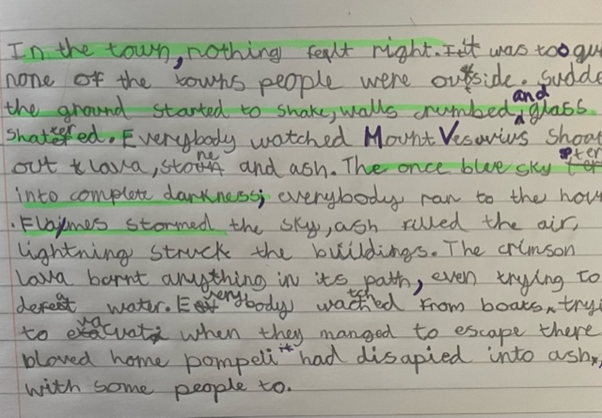 In the town, nothing felt right. It was too qu
none of the towns people were outside. Sudde
the ground started to shake, walls crumbed, and glass
shattered. Everybody watched Mount Vesuvius shoot
out lava, stone and ash. The once blue sky
into complete darkness; everybody ran to the hou
. Flaymes stormed the sky, ash filled the air,
lightning struck the buildings. The crimson
lava burnt anything in its path, even trying to
defeat water. Everybody watched from boats, tryi
to evacuate when they manged to escape there
bloved home pompeli it had disapied into ash,
with some people to.